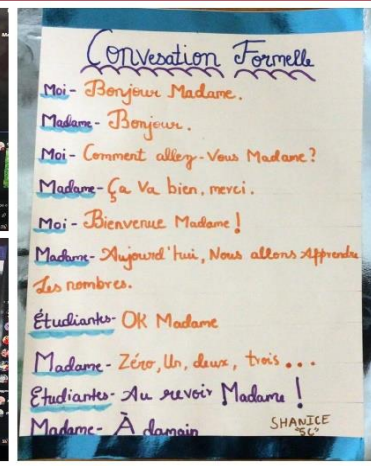 Convesation Formelle
Moi- Bonjour Madame.
Madame- Bonjour.
Moi- Comment allez-Vous Madame?
Madame- Ça Va bien, merci.
Moi- Bienvenue Madame!
Madame- Aujourd'hui, Nous allons Apprendre
Les nombres.
Étudiants- OK Madame
Madame- Zéro, Un, deux, trois...
Étudiantes- Au revoir Madame!
Madame- À damain
SHANICE
"5C"